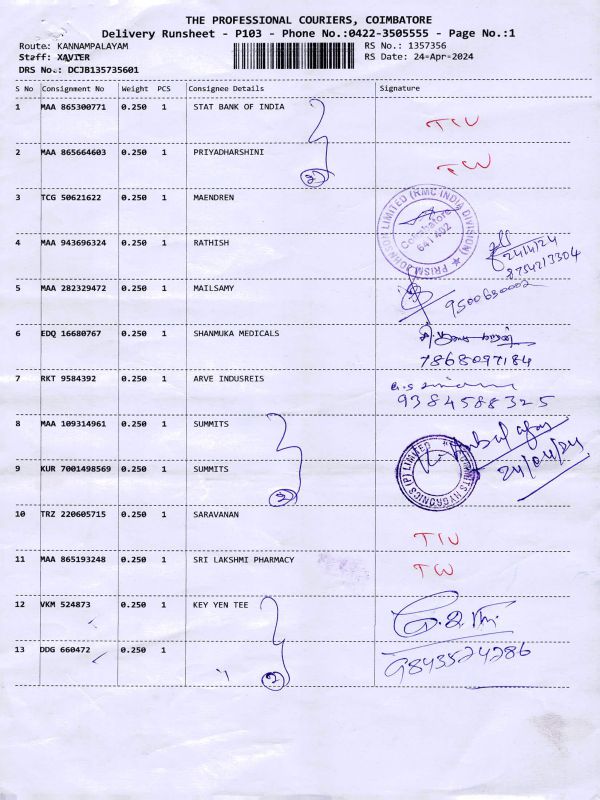 THE PROFESSIONAL COURIERS, COIMBATORE
Delivery Runsheet - P103 - Phone No.:0422-3505555 - Page No.:1
Route: KANNAMPALAYAM RS No.: 1357356
Staff: XAVIER RS Date: 24-Apr-2024
DRS No.: DCJB135735601
S No Consignment No Weight PCS Consignee Details Signature
1 MAA 865300771 0.250 1 STAT BANK OF INDIA
2 MAA 865664603 0.250 1 PRIYADHARSHINI
2
3 TCG 50621622 0.250 1 MAENDREN
PRISM JOHNSON LIMITED (RMC INDIA DIVISION)
Coimbatore
641402
4 MAA 943696324 0.250 1 RATHISH
24/4/24
8754213304
5 MAA 282329472 0.250 1 MAILSAMY
9500650002
6 EDQ 16680767 0.250 1 SHANMUKA MEDICALS
7868097184
7 RKT 9584392 0.250 1 ARVE INDUSREIS
9384588325
8 MAA 109314961 0.250 1 SUMMITS
9 KUR 7001498569 0.250 1 SUMMITS
24/04/24
2
10 TRZ 220605715 0.250 1 SARAVANAN
11 MAA 865193248 0.250 1 SRI LAKSHMI PHARMACY
12 VKM 524873 0.250 1 KEY YEN TEE
13 DDG 660472 0.250 1
9843524286
2